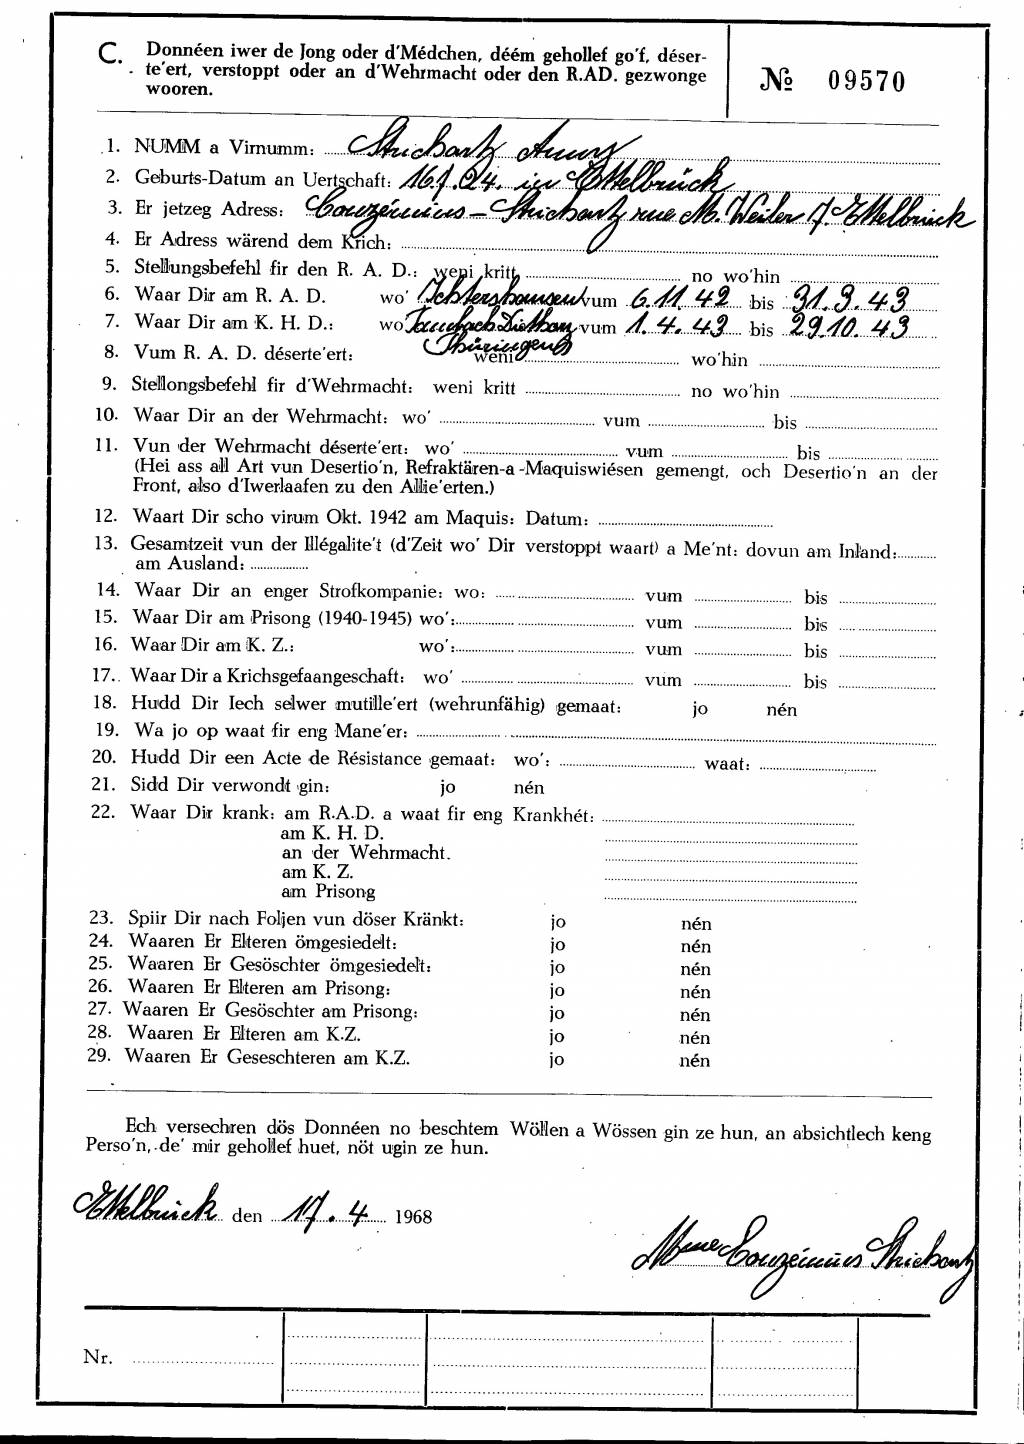 C. Donnéen iwer de Jong oder d'Médchen, déém gehollef go'f, déser-
te'ert, verstoppt oder an d'Wehrmacht oder den R.AD. gezwonge
wooren.
№ 09570
1. NUMM a Virnumm: Strichartz Anny
2. Geburts-Datum an Uertschaft: 16.1.24. in Ettelbrück
3. Er jetzeg Adress: Couzémius-Strichartz rue M. Weiler 7. Ettelbrück
4. Er Adress wärend dem Krich:
5. Stellungsbefehl fir den R. A. D.: weni kritt no wo'hin
6. Waar Dir am R. A. D. wo' Ichtershausen vum 6.11.42 bis 31.3.43
7. Waar Dir am K. H. D.: wo Tambach Dietharz vum 1.4.43 bis 29.10.43
Thüringen
8. Vum R. A. D. déserte'ert: weni wo'hin
9. Stellongsbefehl fir d'Wehrmacht: weni kritt no wo'hin
10. Waar Dir an der Wehrmacht: wo' vum bis
11. Vun der Wehrmacht déserte'ert: wo' vum bis
(Hei ass all Art vun Desertio'n, Refraktären-a-Maquiswiésen gemengt, och Desertio'n an der
Front, also d'Iwerlaafen zu den Allie'erten.)
12. Waart Dir scho virum Okt. 1942 am Maquis: Datum:
13. Gesamtzeit vun der Illégalite't (d'Zeit wo' Dir verstoppt waart) a Me'nt: dovun am Inland:
am Ausland:
14. Waar Dir an enger Strofkompanie: wo: vum bis
15. Waar Dir am Prisong (1940-1945) wo': vum bis
16. Waar Dir am K. Z.: wo': vum bis
17. Waar Dir a Krichsgefaangeschaft: wo' vum bis
18. Hudd Dir Iech selwer mutille'ert (wehrunfähig) gemaat: jo nén
19. Wa jo op waat fir eng Mane'er:
20. Hudd Dir een Acte de Résistance gemaat: wo': waat:
21. Sidd Dir verwondt gin: jo nén
22. Waar Dir krank: am R.A.D. a waat fir eng Krankhét:
am K. H. D.
an der Wehrmacht.
am K. Z.
am Prisong
23. Spiir Dir nach Foljen vun döser Kränkt: jo nén
24. Waaren Er Elteren ömgesiedelt: jo nén
25. Waaren Er Gesöschter ömgesiedelt: jo nén
26. Waaren Er Elteren am Prisong: jo nén
27. Waaren Er Gesöschter am Prisong: jo nén
28. Waaren Er Elteren am K.Z. jo nén
29. Waaren Er Geseschteren am K.Z. jo nén
Ech versechren dös Donnéen no beschtem Wöllen a Wössen gin ze hun, an absichtlech keng
Perso'n, de' mir gehollef huet, nöt ugin ze hun.
Ettelbrück den 17.4 1968
Mme Couzémius Strichartz
Nr.